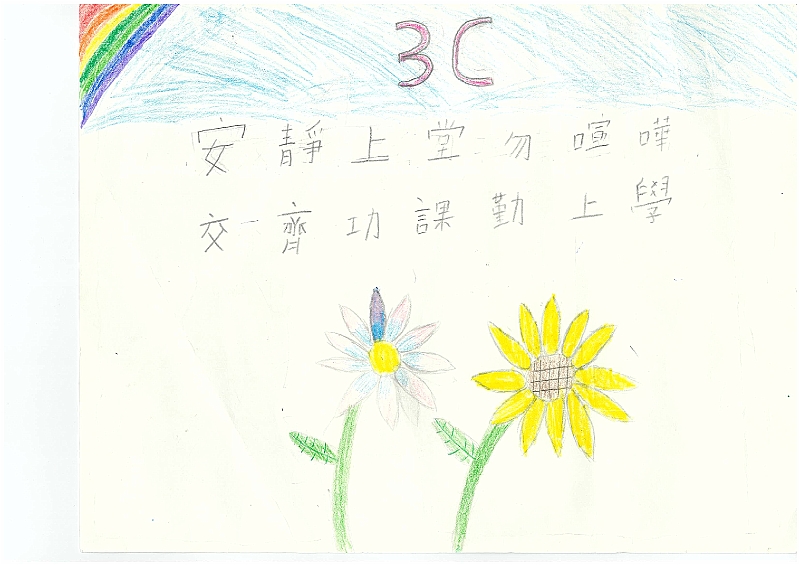 3C
安靜上堂勿喧嘩
交齊功課勤上學